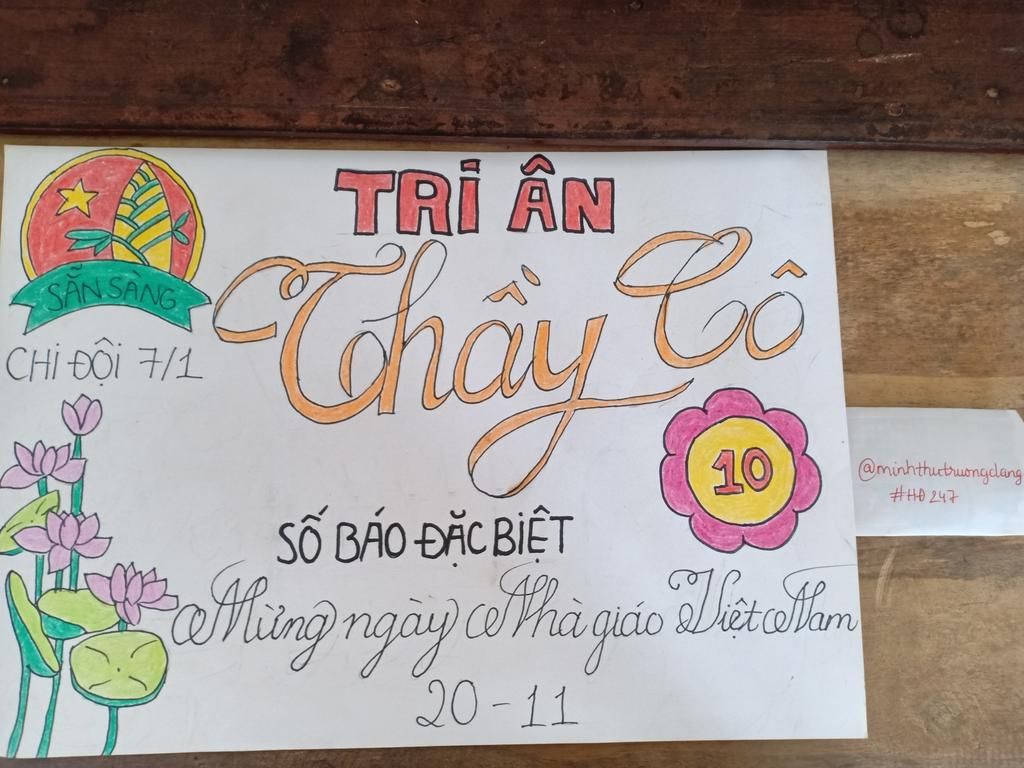 TRI ÂN
Thầy Cô
SẴN SÀNG
CHI ĐỘI 7/1
10
SỐ BÁO ĐẶC BIỆT
Mừng ngày Nhà giáo Việt Nam
20-11
@minhthutruongdang
#HĐ247